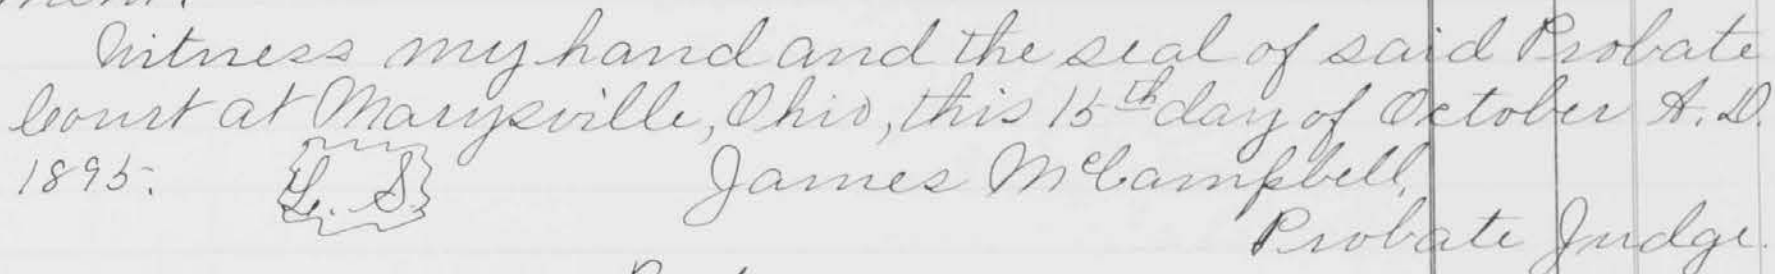 Witness my hand and the seal of said Probate
Court at Marysville, Ohio, this 15th day of October A.D.
1895. L. S. James McCampbell,
Probate Judge.